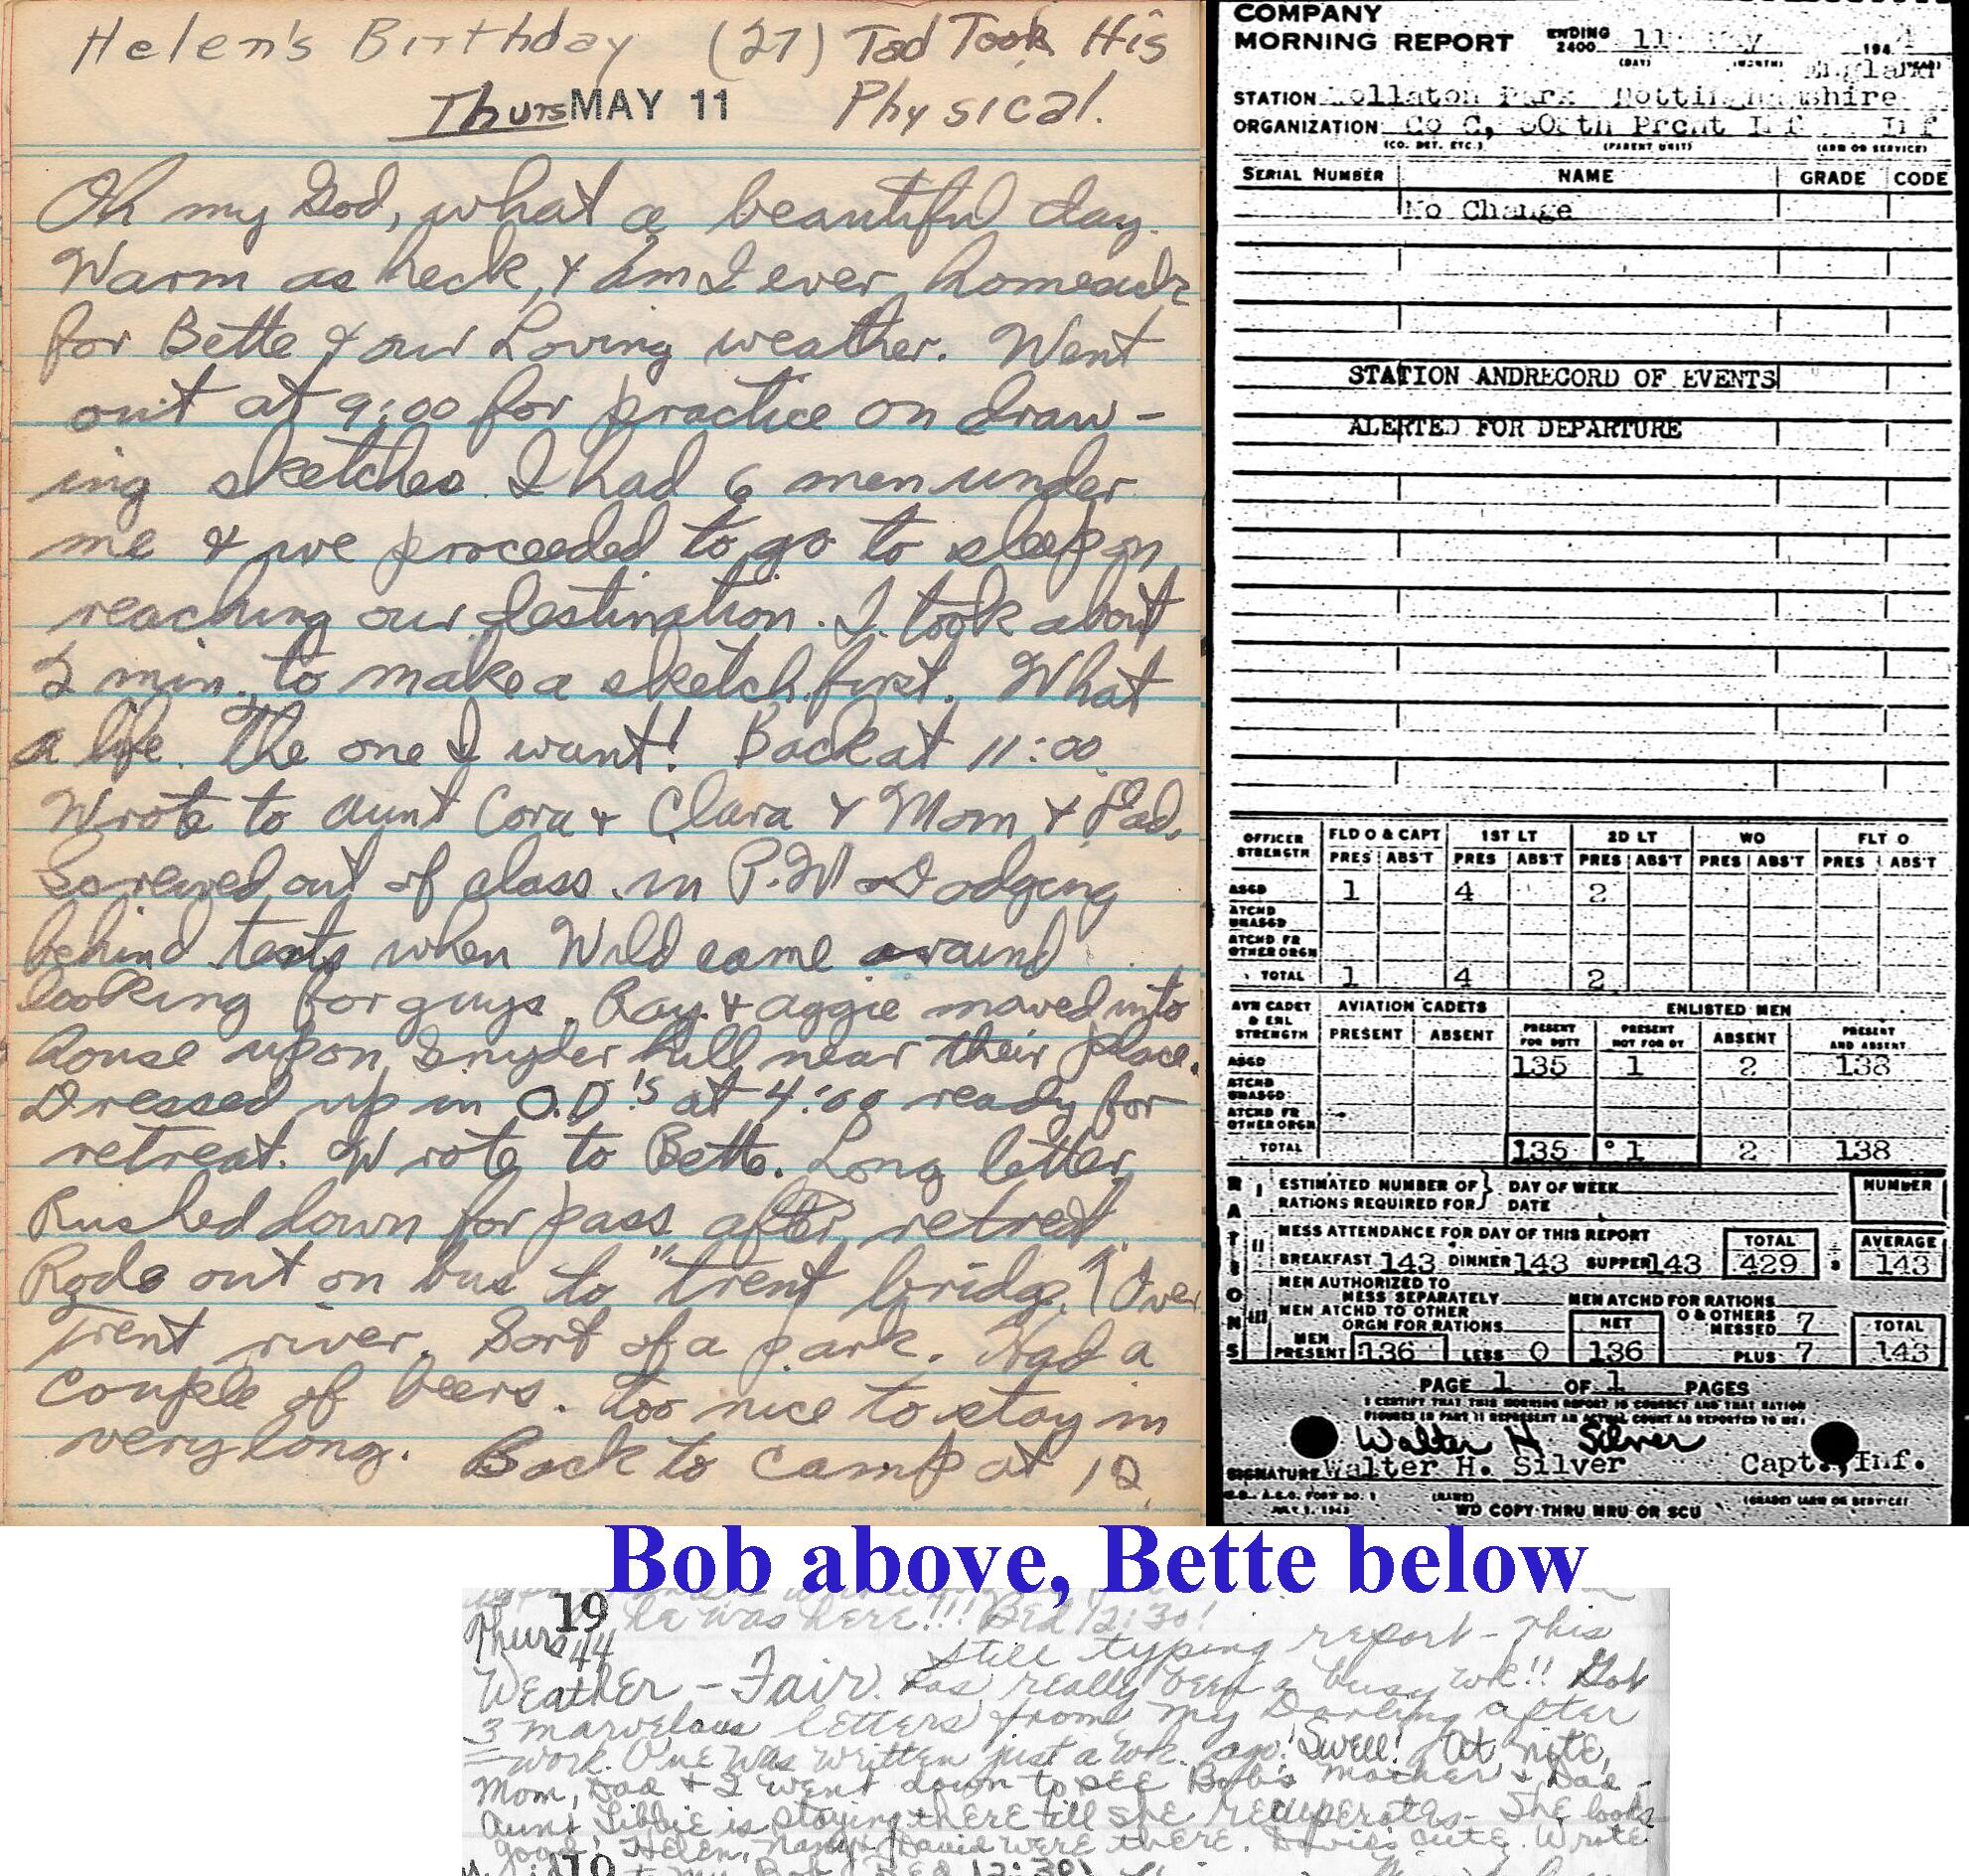 Helen's Birthday (27) Tad Took His
Thurs MAY 11 Physical.
Oh my God, what a beautiful day.
Warm as heck, & am I ever
for Bette & our Loving weather. Went
out at 9:00 for practice on draw-
ing sketches. I had 6 men under
me & we proceeded to go to sleep on
reaching our destination. I took about
2 min. to make a sketch first. What
a life. The one I want! Back at 11:00.
Wrote to Aunt Cora & Clara & Mom & Dad.
Screwed out of class in P.M. Dodging
behind tents when Wild came around
looking for guys. Ray & Aggie moved into
house up on Snyder hill near their place.
Dressed up in O.D.'s at 4:00 ready for
retreat. Wrote to Bette. Long letter
Rushed down for pass after retreat.
Rode out on bus to "trent bridge." Over
Trent river. Sort of a park. Had a
couple of beers. Too nice to stay in
very long. Back to camp at 12.
COMPANY
MORNING REPORT ENDING 2400 11 194
(DAY) (MONTH) (YEAR)
England
STATION
ORGANIZATION Co C,
(CO. DET. ETC.) (PARENT UNIT) (ARM OR SERVICE)
SERIAL NUMBER NAME GRADE CODE
No Change
STATION ANDRECORD OF EVENTS
ALERTED FOR DEPARTURE
OFFICER STRENGTH FLD O & CAPT 1ST LT 2D LT WO FLT O
PRES ABS'T PRES ABS'T PRES ABS'T PRES ABS'T PRES ABS'T
ASGD 1 4 2
ATCHD UNASGD
ATCHD FR OTHER ORGN
TOTAL 1 4 2
AVN CADET & ENL STRENGTH AVIATION CADETS ENLISTED MEN
PRESENT ABSENT PRESENT FOR DUTY PRESENT NOT FOR DY ABSENT PRESENT AND ABSENT
ASGD 135 1 2 138
ATCHD UNASGD
ATCHD FR OTHER ORGN
TOTAL 135 1 2 138
RATIONS
I ESTIMATED NUMBER OF RATIONS REQUIRED FOR DAY OF WEEK DATE NUMBER
II MESS ATTENDANCE FOR DAY OF THIS REPORT TOTAL AVERAGE
BREAKFAST 143 DINNER 143 SUPPER 143 429 ÷ 3 143
III MEN AUTHORIZED TO MESS SEPARATELY MEN ATCHD FOR RATIONS
MEN ATCHD TO OTHER ORGN FOR RATIONS NET O & OTHERS MESSED 7 TOTAL
MEN PRESENT 136 LESS 0 136 PLUS 7 143
PAGE 1 OF 1 PAGES
I CERTIFY THAT THIS MORNING REPORT IS CORRECT AND THAT RATION
FIGURES IN PART II REPRESENT AN ACTUAL COUNT AS REPORTED TO ME:
Walter H. Silver
SIGNATURE Walter H. Silver Capt., Inf.
W.D., A.G.O. FORM NO. 1 (NAME) (GRADE) (ARM OR SERVICE)
JULY 1, 1943 WD COPY THRU MRU OR SCU
Bob above, Bette below
he was here!!! Bed 12:30!
19
Thurs 44 Still typing report - This
Weather - Fair. has really been a busy wk!! Got
3 marvelous letters from my Darling after
work. One was written just a wk. ago! Swell! At nite,
Mom, Dad & I went down to see Bob's Mother & Dad -
Aunt Libbie is staying there till she recuperates - She looks
good. Helen, Nancy & David were there. David's cute. Wrote
to my Bob. Bed 12:30